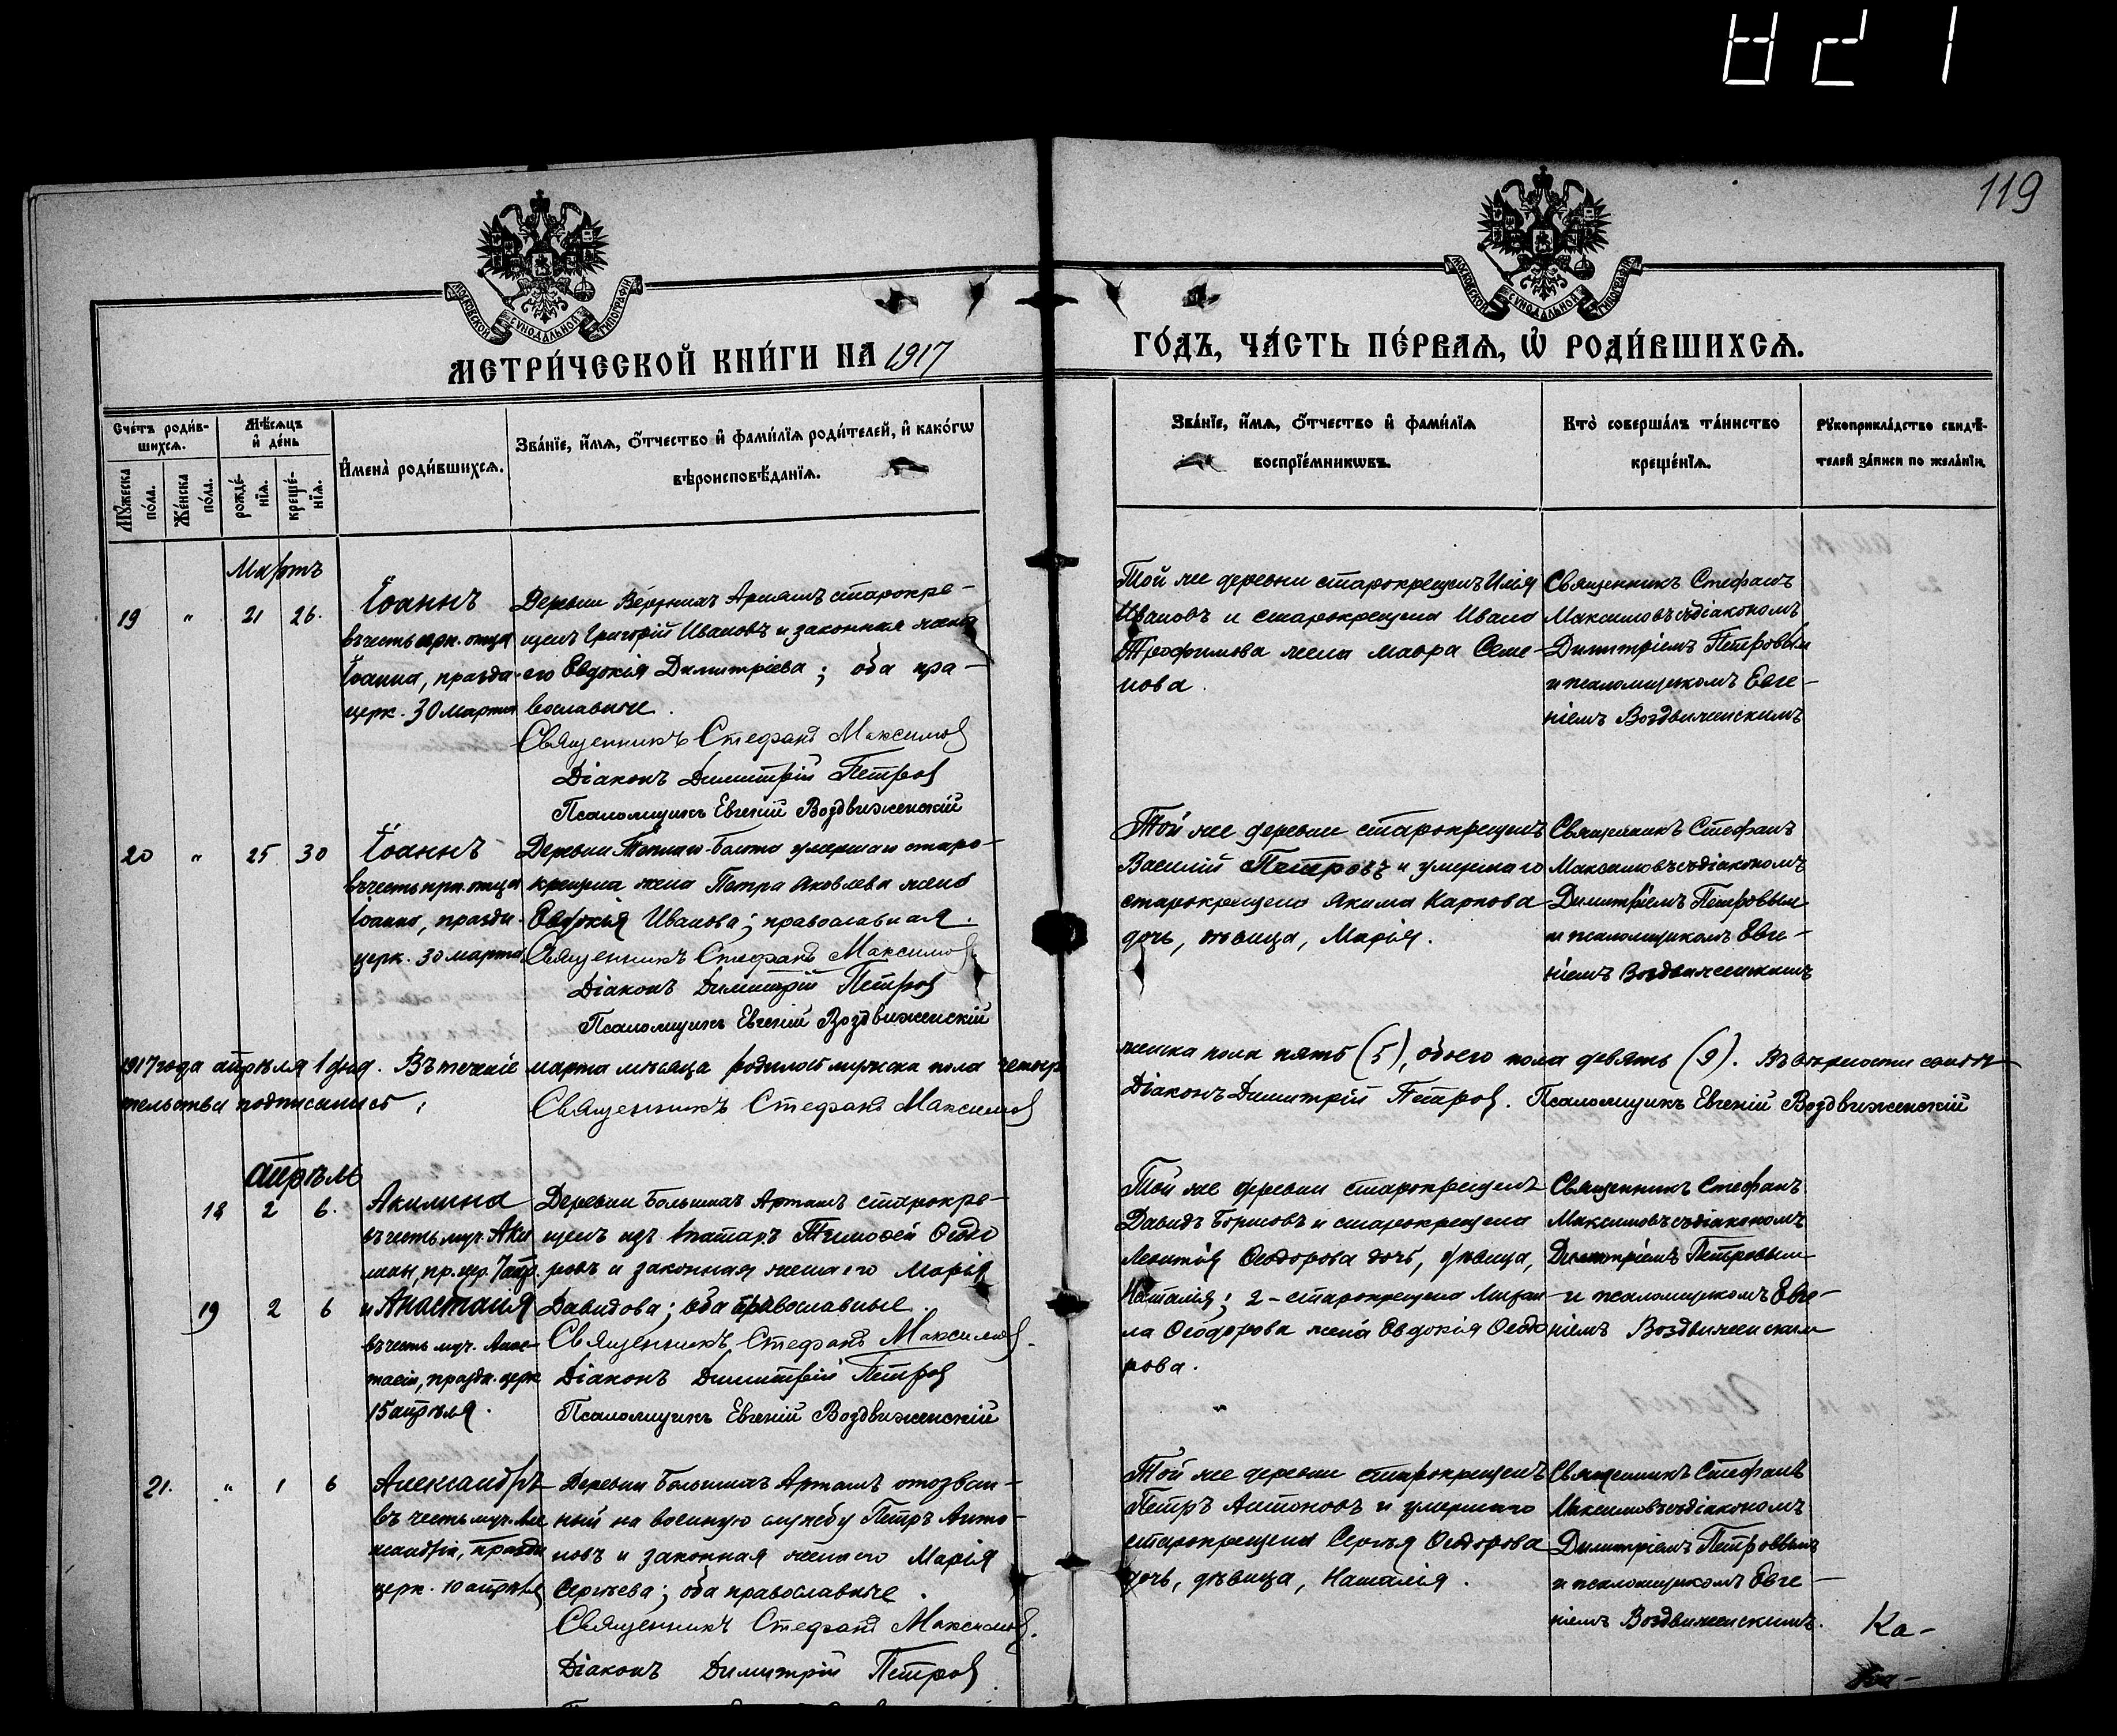 821
119
МОСКОВСКОЙ СУНОДАЛЬНОЙ ТИПОГРАФІИ
МОСКОВСКОЙ СУНОДАЛЬНОЙ ТИПОГРАФІИ
МЕТРИ́ЧЕСКОЙ КНИ́ГИ НА 1917
ГО́ДЪ, ЧА́СТЬ ПЕ́РВАЯ, Ѡ҆ РОДИ́ВШИХСЯ.
Сче́тъ роди́в-
шихся.
Мѣ́сяцъ
и҆ де́нь
Му́жеска
по́ла.
Же́нска
по́ла.
рожде́-
нїя.
креще́-
нїя.
И҆мена̀ роди́вшихся.
Зва́нїе, и҆́мя, ѻ҆́тчество и҆ фами́лїя роди́телей, и҆ како́гѡ
вѣроисповѣ́данїя.
Зва́нїе, и҆́мя, ѻ҆́тчество и҆ фами́лїя
воспрїе́мникѡвъ.
Кто̀ соверша́лъ та́инство
креще́нїя.
Рукоприкла́дство свидѣ́-
телей за́писи по жела́нїю.
Мартъ
19 " 21 26.
Іоаннъ
въ честь прп. отца
Іоанна, праздн.
церк. 30 марта
Деревни Верхнихъ старокре-
щенъ Григорій Ивановъ и законная жена
его Евдокія Димитріева; оба пра-
вославные.
Священникъ Стефанъ Максимов
Діаконъ Димитрій Петров
Псаломщикъ Евгеній Воздвиженскій
Той же деревни старокрещенъ Илія
Ивановъ и старокрещена Ивана
Трофимова жена Мавра Семе-
нова.
Священникъ Стефанъ
Максимовъ съ діакономъ
Димитріемъ Петровым
и псаломщикомъ Евге-
ніемъ Воздвиженскимъ
20 " 25 30
Іоаннъ
въ честь прп. отца
Іоанна, праздн.
церк. 30 марта
Деревни умершаго старо-
крещена Петра Яковлева жена
Евдокія Иванова; православная.
Священникъ Стефанъ Максимов
Діаконъ Димитрій Петров
Псаломщикъ Евгеній Воздвиженскій
Той же деревни старокрещенъ
Василій Петровъ и умершаго
старокрещена Якима Карпова
дочь, дѣвица, Марія.
Священникъ Стефанъ
Максимовъ съ діакономъ
Димитріемъ Петровым
и псаломщикомъ Евге-
ніемъ Воздвиженскимъ
1917 года апрѣля 1 дня. Въ теченіе марта мѣсяца родилось мужска пола четыр
женска пола пять (5), обоего пола девять (9). Въ вѣрности
тельства подписались:
Священникъ Стефанъ Максимов
Діаконъ Димитрій Петров. Псаломщикъ Евгеній Воздвиженскій
апрѣль
18 2 6.
Акилина
въ честь муч. Аки
лины, пр. цер. 7 апр.
19 2 6
и Анастасія
въ честь муч. Анас-
тасіи, праздн. церк
15 апрѣля.
Деревни Большихъ Арташъ старокре-
щенъ изъ татаръ Тимофей Ѳеодо
ровъ и законная жена его Марія
Давидова; оба православные.
Священникъ Стефанъ Максимов.
Діаконъ Димитрій Петров
Псаломщикъ Евгеній Воздвиженскій
Той же деревни старокрещенъ
Давидъ Борисовъ и старокрещена
Леонтія Ѳеодорова дочь, дѣвица,
Наталія; 2-старокрещена Михаи
ла Ѳеодорова жена Евдокія Ѳеодо
рова.
"
Священникъ Стефанъ
Максимовъ съ діакономъ
Димитріемъ Петровым
и псаломщикомъ Евге-
ніемъ Воздвиженским
21. " 1 6
Александръ
въ честь муч. Але
ксандра, праздн
церк. 10 апрѣля
Деревни Большихъ Арташъ отозван-
ный на военную службу Петръ Анто-
новъ и законная жена его Марія
Сергѣева; оба православные.
Священникъ Стефанъ Максимов.
Діаконъ Димитрій Петров
Той же деревни старокрещенъ
Петръ Антоновъ и умершаго
старокрещена Сергѣя Ѳеодорова
дочь, дѣвица, Наталія.
Священникъ Стефанъ
Максимовъ съ діакономъ
Димитріемъ Петровымъ
и псаломщикомъ Евге-
ніемъ Воздвиженскимъ.
Ка-